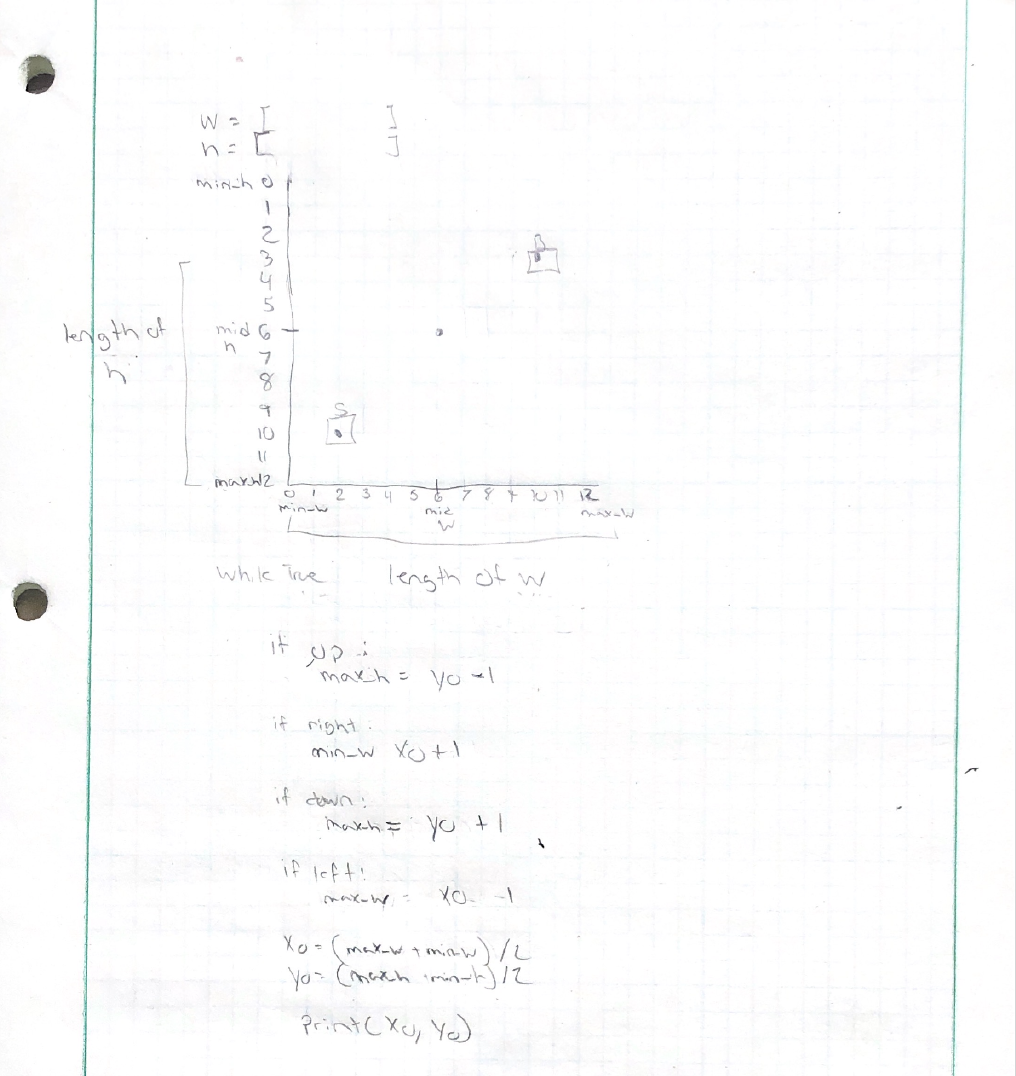 w = [ ]
h = [ ]
min-h 0
1
2
B
3
4
5
length of h
mid h 6
7
8
9
S
10
11
max-h 12
0 1 2 3 4 5 6 7 8 9 10 11 12
min-w mid w max-w
While True length of w
if up :
max-h = y0 -1
if right :
min_w x0 + 1
if down :
max-h = y0 + 1
if left :
max-w = x0 -1
x0 = (max-w + min-w) /2
y0 = (max-h + min-h) /2
print(x0, y0)